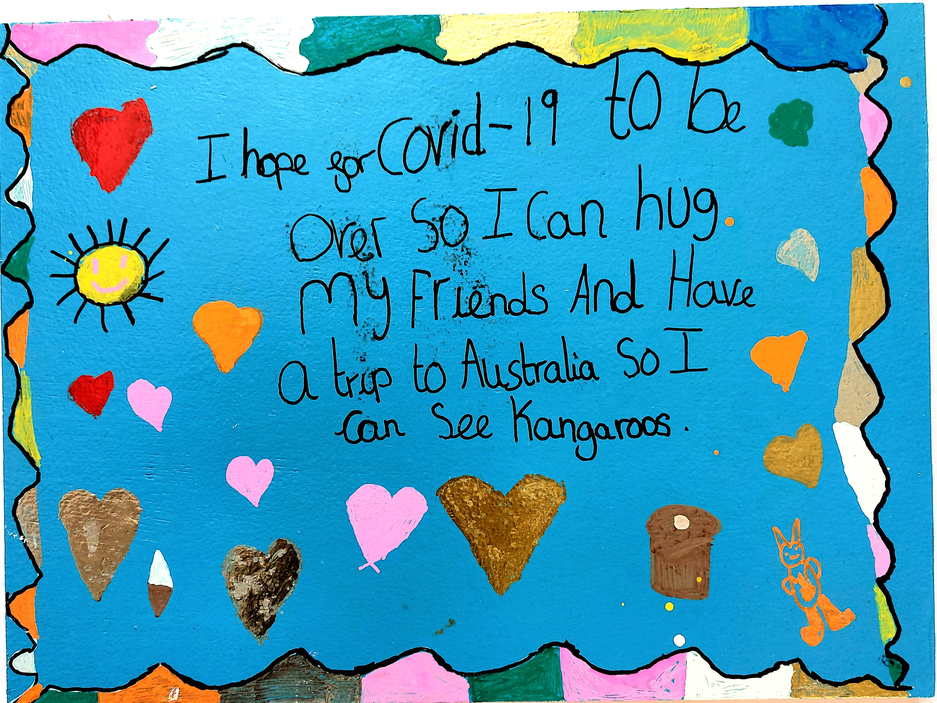 I hope for Covid-19 to be
Over So I Can hug
My Friends And Have
A trip to Australia So I
Can See Kangaroos.